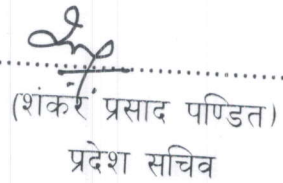 (शंकर प्रसाद पण्डित)
प्रदेश सचिव